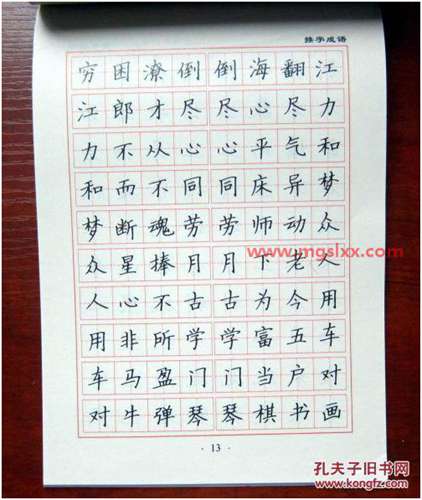 接字成语
穷困潦倒倒海翻江
江郎才尽尽心尽力
力不从心心平气和
和而不同同床异梦
梦断魂劳劳师动众
众星捧月月下老人
人心不古古为今用
用非所学学富五车
车马盈门门当户对
对牛弹琴琴棋书画
www.mgslxx.com
· 13 ·
孔夫子旧书网
www.kongfz.com